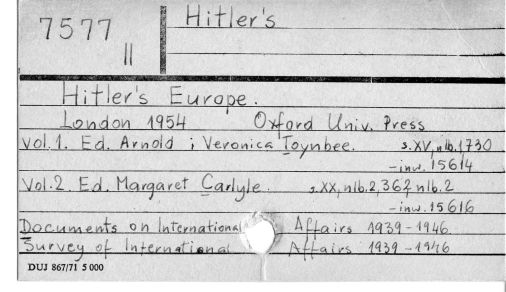 7577
II
Hitler's
Hitler's Europe.
London 1954 Oxford Univ. Press
Vol. 1. Ed. Arnold i Veronica Toynbee. s. XV, nlb. 1730
-inw. 15614
Vol. 2. Ed. Margaret Carlyle. s. XX, nlb. 2, 362 nlb. 2
-inw. 15616
Documents on International Affairs 1939-1946
Survey of International Affairs 1939-1946
DUJ 867/71 5 000